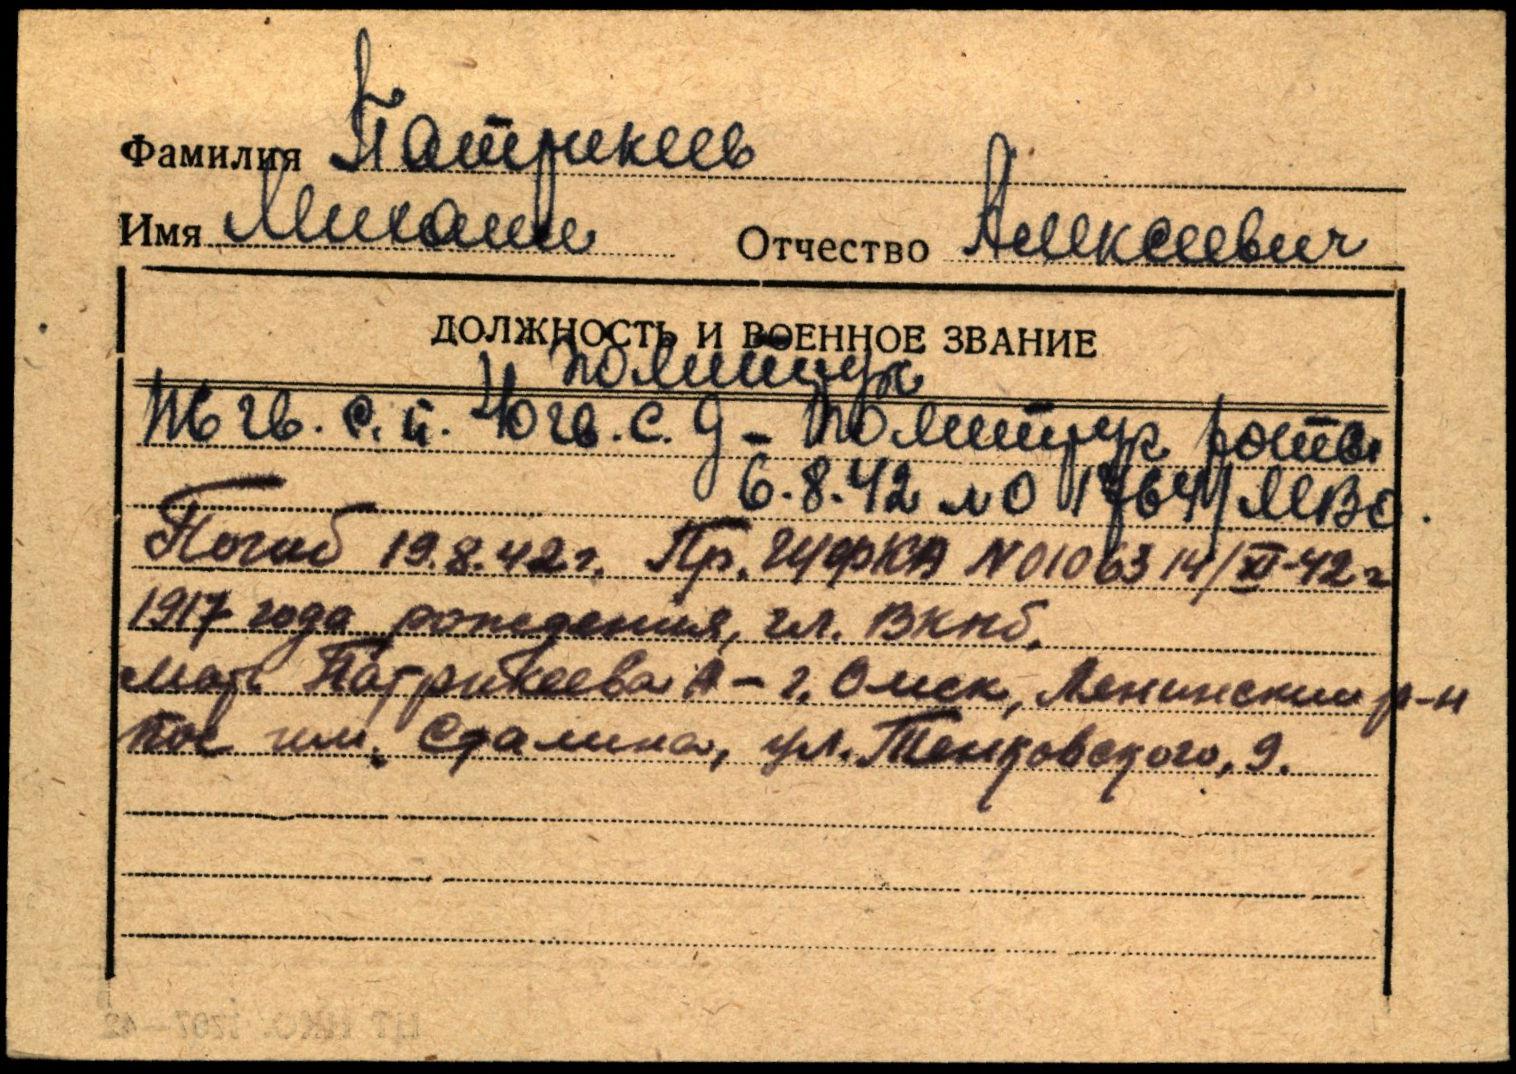 Фамилия Патрикеев
Имя Михаил Отчество Алексеевич
ДОЛЖНОСТЬ И ВОЕННОЕ ЗВАНИЕ
Политрук
гв. с.п. гв. с. д - Политрук роты
6.8.42 МВО
Погиб 19.8.42 г. Пр. ГУФКА N 01063 14/XI-42 г
1917 года рождения, чл. ВКПб.
мать Патрикеева А - г. Омск, Ленинский р-н
пос им. Сталина, ул.
ЦТ НКО. 1707—42